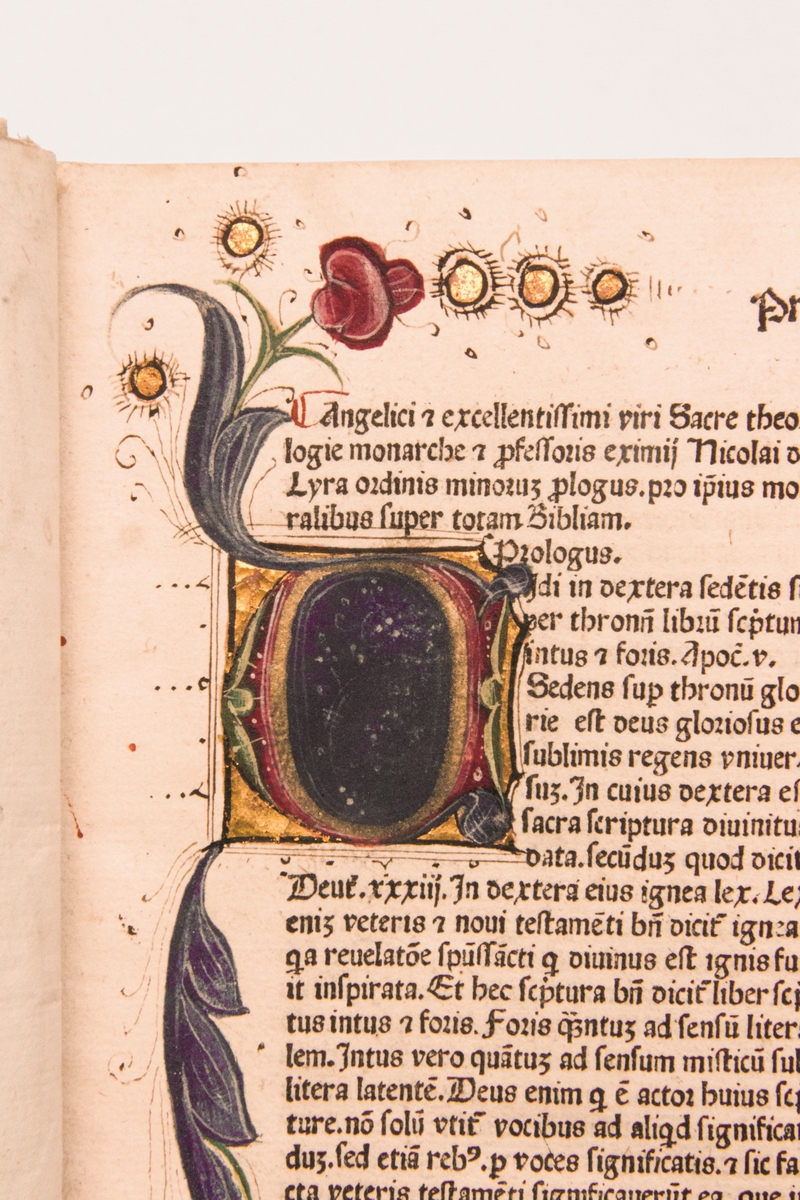 Pr
Angelici ⁊ excellentissimi viri Sacre theo
logie monarche ⁊ ꝓfessoris eximij Nicolai
Lyra ordinis minoruꝫ ꝓlogus. pro ip̄ius mo
ralibus super totam Bibliam.
Prologus.
Uidi in dextera sedētis s
per thronū librū scp̄tum
intus ⁊ foris. Apoc̄. v.
Sedens suꝑ thronū glo
rie est deus gloriosus e
sublimis regens vniuer
suꝫ. In cuius dextera es
sacra scriptura diuinitu
data. secūduꝫ quod dicit
Deut̄. xxxiij. In dextera eius ignea lex. Lex
eniꝫ veteris ⁊ noui testamēti bn̄ dicit̄ ignea
qa reuelatōe spūssācti q diuinus est ignis fu
it inspirata. Et hec scp̄tura bn̄ dicit̄ liber scp̄
tus intus ⁊ foris. Foris qȝntuꝫ ad sensū litera
lem. Intus vero quātuꝫ ad sensum misticū sub
litera latentē. Deus enim q ē actor huius scp̄
ture. nō solū vtit̄ vocibus ad aliqd significa
duꝫ. sed etiā rebꝰ. p voces significatis. ⁊ sic fa
cta veteris testamēti significauerūt ea. que i